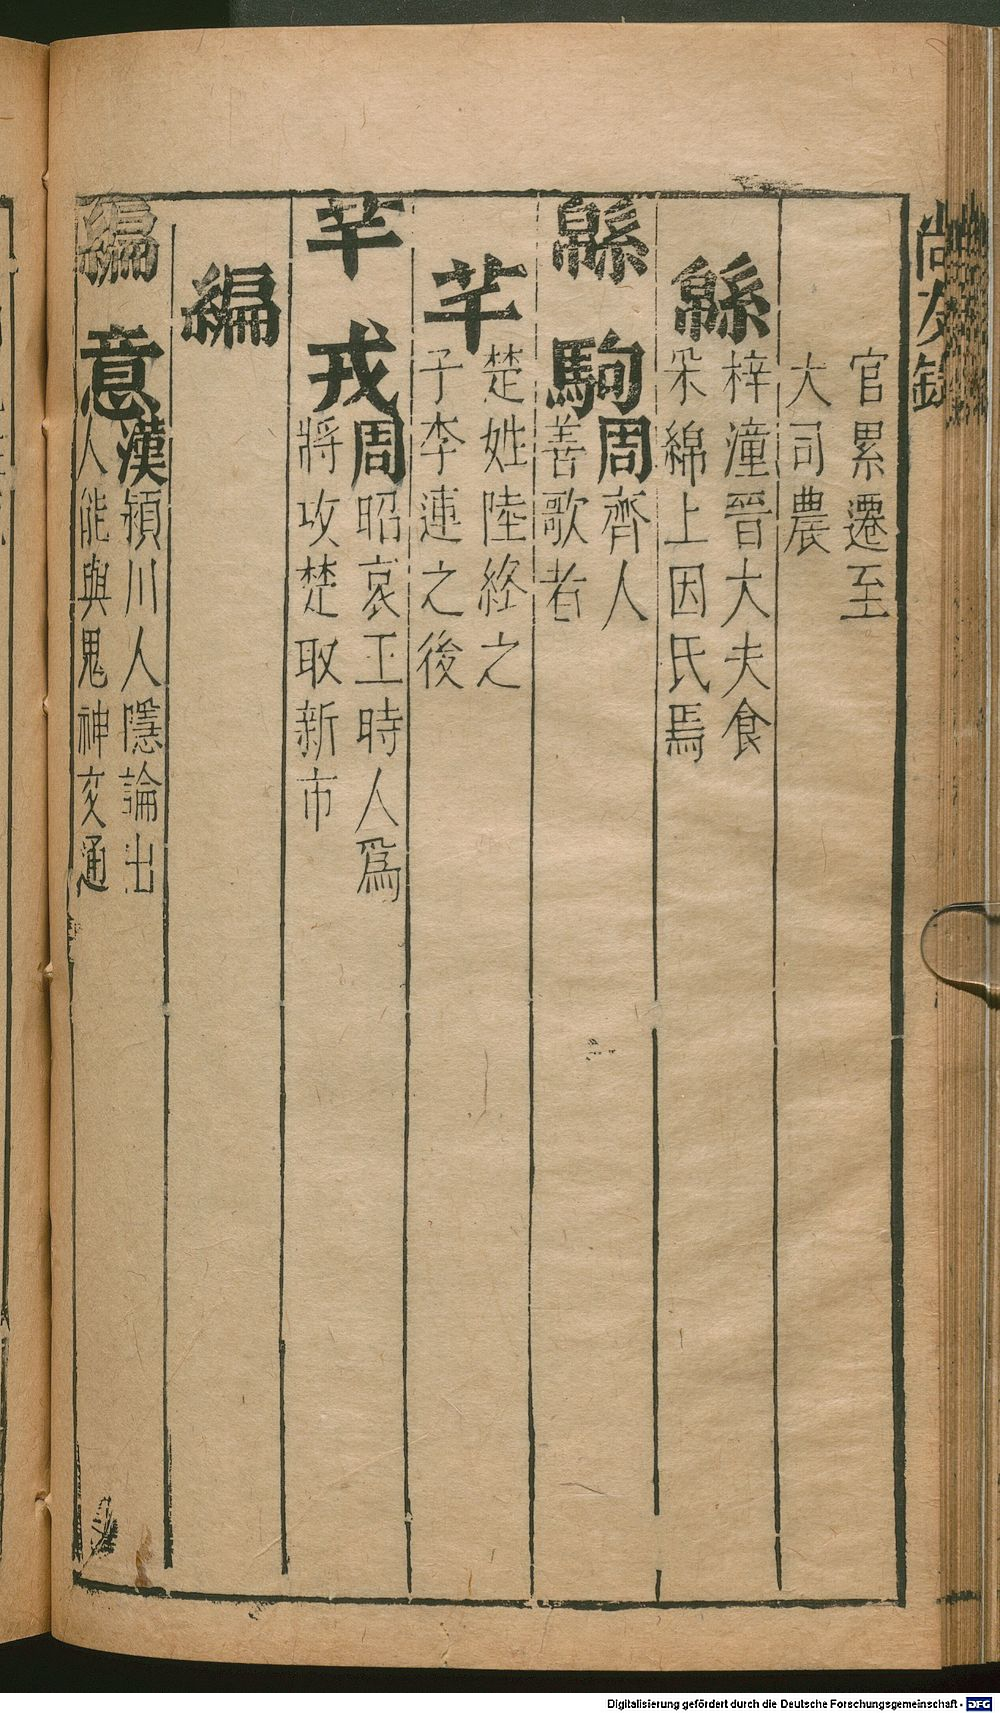 尚友錄
官累遷至
大司農
緜
梓潼晉大夫食
采綿上因氏焉
緜駒周齊人
善歌者
芊
楚姓陸終之
子李連之後
芊戎周昭哀王時人爲
將攻楚取新市
編
編意漢潁川人隱論出
人能與鬼神交通
Digitalisierung gefördert durch die Deutsche Forschungsgemeinschaft - DFG